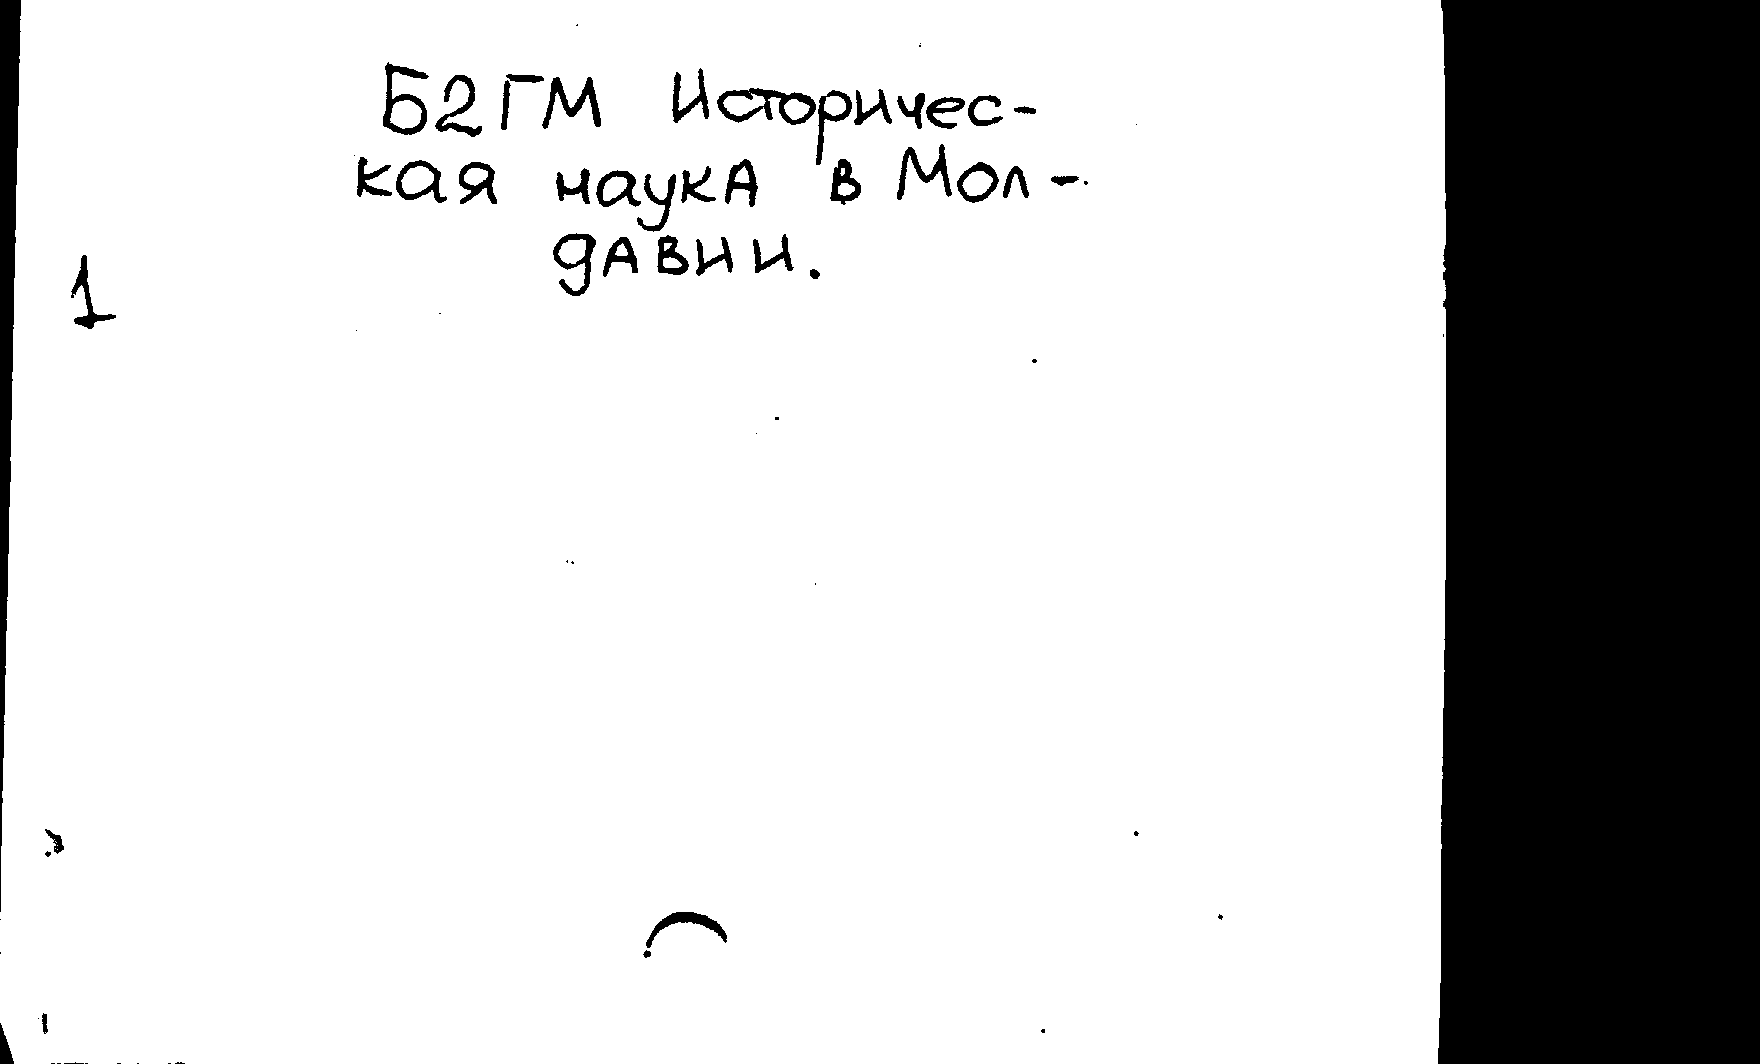 Б2ГМ Историчес-
кая наука в Мол-
давии.
1